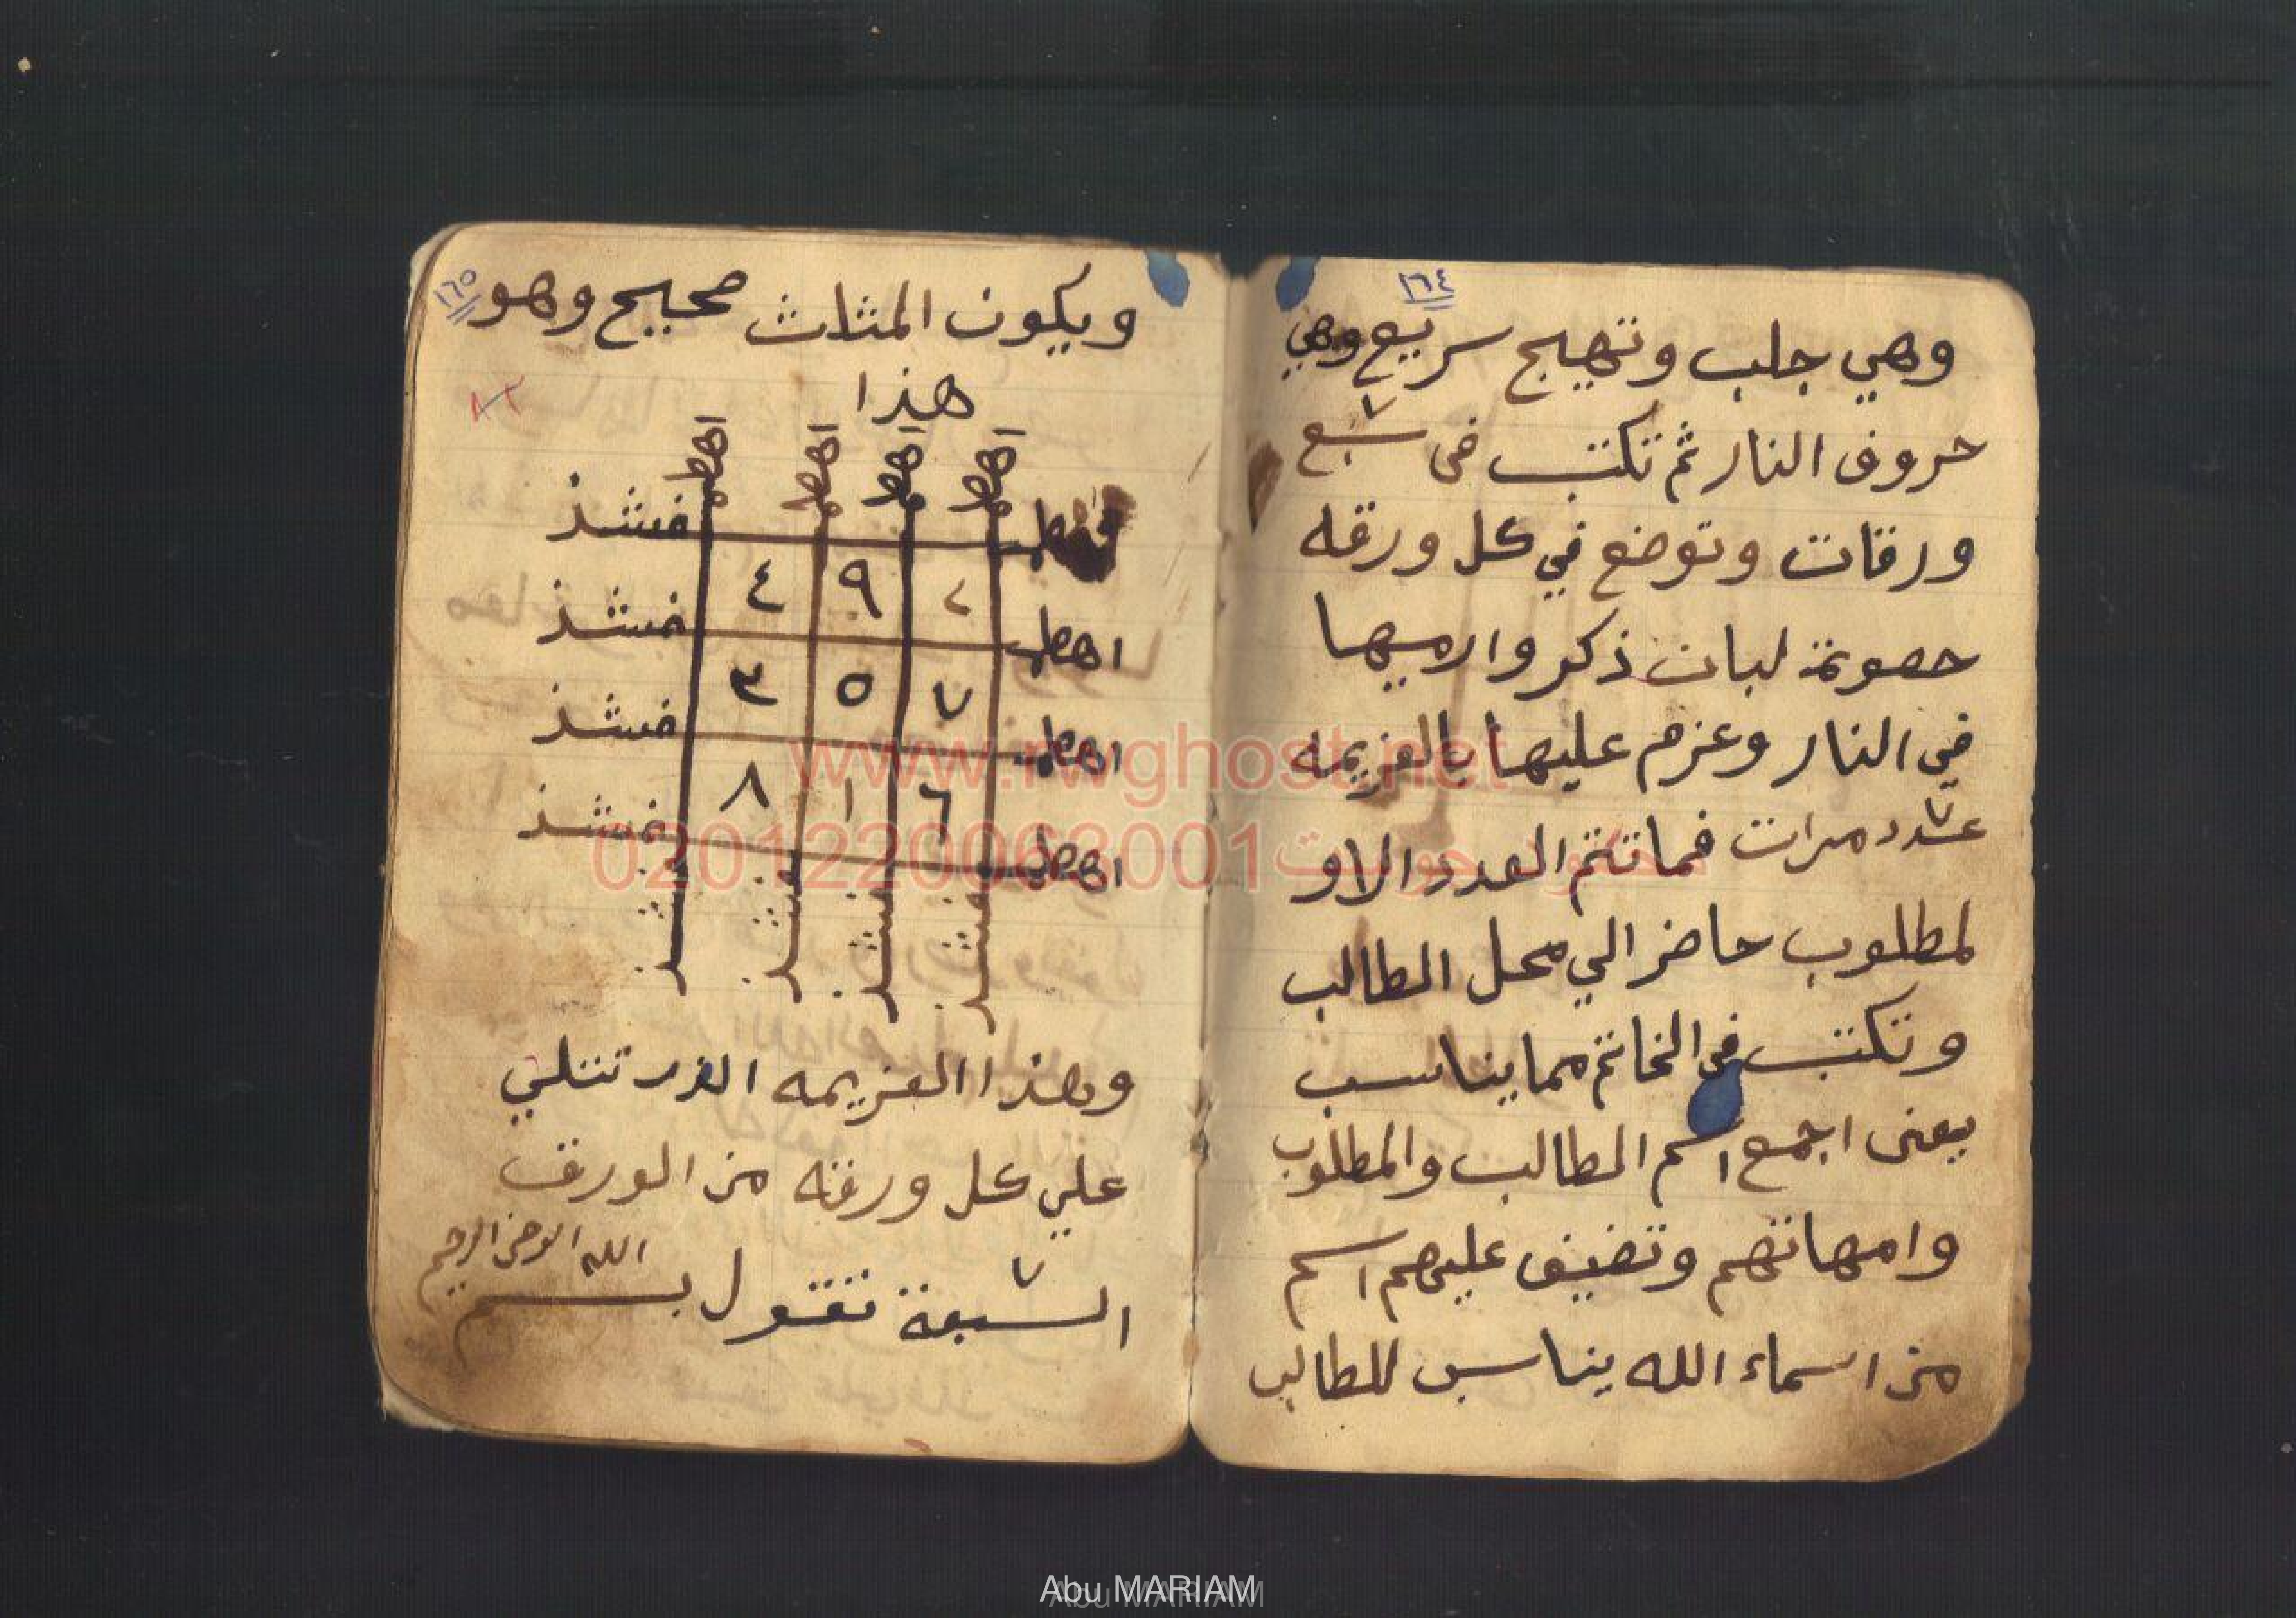 ١٦٤
وهي جلب وتهيج سريع وهي
حروف النار ثم تكتب في سبع ٧
ورقات وتوضع في كل ورقه
حصوة لبان ذكر وارميها
في النار وعزم عليها بالعزيمه
عدد ٧ مرات فما تتم العدد الاو
لمطلوب حاضر الي محل الطالب
وتكتب في الخاتم مما يناسب
يعنى اجمع اسم الطالب والمطلوب
وامهاتهم وتضيف عليهم اسم
من اسماء الله يناسب للطالب
١٦٥
ويكون المثلث صحيح وهو
هذا
اهطم اهطم اهطم اهطم
فشذ
٢ ٩ ٤
اهطم فشذ
٧ ٥ ٣
اهطم فشذ
٦ ١ ٨
اهطم فشذ
فشذ فشذ فشذ فشذ
وهذا العزيمه الذى تتلي
علي كل ورقه من الورق
السبعة ٧ تقول بسم الله الرحمن الرحيم
www.rwghost.net
0201220063001
Abu MARIAM